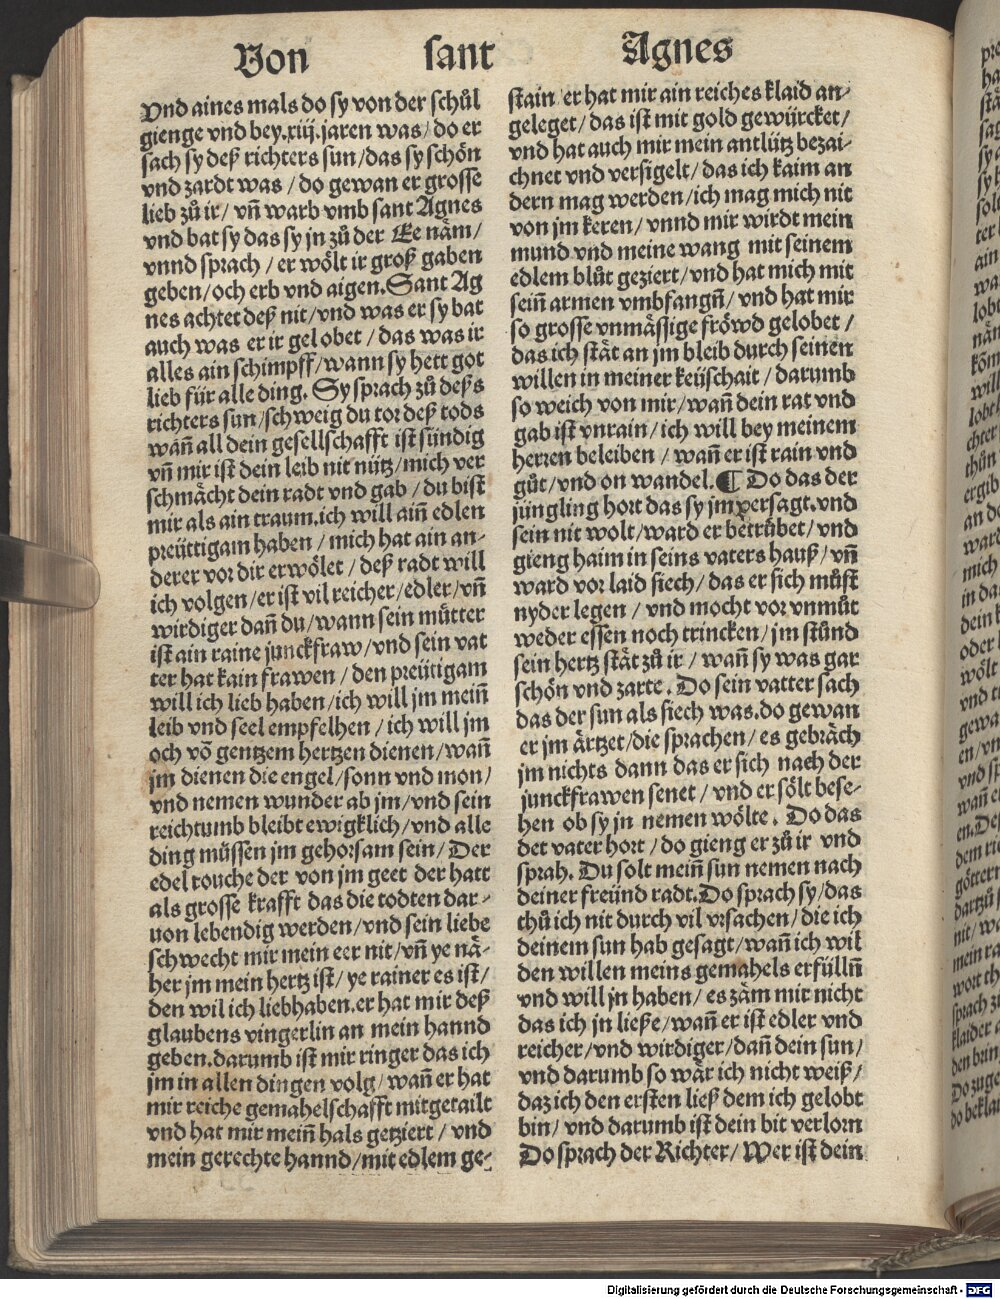 Von sant Agnes
Vnd aines mals do sy von der schůl
gienge vnd bey.xiij.jaren was/ do er
sach sy deß richters sun/das sy schön
vnd zardt was / do gewan er grosse
lieb zů ir/ vñ warb vmb sant Agnes
vnd bat sy das sy jn zů der Ee näm/
vnnd sprach / er wölt ir groß gaben
geben/och erb vnd aigen.Sant Ag
nes achtet deß nit/vnd was er sy bat
auch was er ir gelobet / das was ir
alles ain schimpff/wann sy hett got
lieb für alle ding. Sy sprach zů deßs
richters sun/schweig du tor deß tods
wañ all dein gesellschafft ist sündig
vñ mir ist dein leib nit nütz/mich ver
schmächt dein radt vnd gab / du bist
mir als ain traum.ich will aiñ edlen
preüttigam haben / mich hat ain an-
derer vor dir erwölet / deß radt will
ich volgen/er ist vil reicher/edler/vñ
wirdiger dañ du/wann sein můtter
ist ain raine junckfraw/vnd sein vat
ter hat kain frawen / den preütigam
will ich lieb haben/ich will jm meiñ
leib vnd seel empfelhen / ich will jm
och võ gentzem hertzen dienen/wañ
jm dienen die engel/sonn vnd mon/
vnd nemen wunder ab jm/vnd sein
reichtumb bleibt ewigklich/vnd alle
ding müssen jm gehorsam sein/ Der
edel rouche der von jm geet der hatt
als grosse krafft das die todten dar-
uon lebendig werden/vnd sein liebe
schwecht mir mein eer nit/vñ ye nä-
her jm mein hertz ist/ ye rainer es ist/
den wil ich liebhaben.er hat mir deß
glaubens vingerlin an mein hannd
geben.darumb ist mir ringer das ich
jm in allen dingen volg/ wañ er hat
mir reiche gemahelschafft mitgetailt
vnd hat mir meiñ hals getziert / vnd
mein gerechte hannd/mit edlem ge-
stain er hat mir ain reiches klaid an-
geleget/ das ist mit gold gewürcket/
vnd hat auch mir mein antlütz bezai-
chnet vnd versigelt/ das ich kaim an
dern mag werden/ich mag mich nit
von jm keren/ vnnd mir wirdt mein
mund vnd meine wang mit seinem
edlem blůt geziert/vnd hat mich mit
seiñ armen vmbfangñ/ vnd hat mir
so grosse vnmässige fröwd gelobet /
das ich stät an jm bleib durch seinen
willen in meiner keüschait / darumb
so weich von mir/wañ dein rat vnd
gab ist vnrain/ich will bey meinem
herren beleiben / wañ er ist rain vnd
gůt/vnd on wandel.¶ Do das der
jüngling hort das sy jm versagt.vnd
sein nit wolt/ward er betrübet/vnd
gieng haim in seins vaters hauß/vñ
ward vor laid siech/das er sich můst
nyder legen / vnd mocht vor vnmůt
weder essen noch trincken/jm stůnd
sein hertz stät zů ir / wañ sy was gar
schön vnd zarte. Do sein vatter sach
das der sun als siech was.do gewan
er jm ärtzet/die sprachen/ es gebräch
jm nichts dann das er sich nach der
junckfrawen senet / vnd er sölt bese-
hen ob sy jn nemen wölte. Do das
det vater hort / do gieng er zů ir vnd
sprah. Du solt meiñ sun nemen nach
deiner freünd radt.Do sprach sy/das
thů ich nit durch vil vrsachen/ die ich
deinem sun hab gesagt/wañ ich wil
den willen meins gemahels erfüllñ
vnd will jn haben/ es zäm mir nicht
das ich jn ließe/wañ er ist edler vnd
reicher/vnd wirdiger/dañ dein sun/
vnd darumb so wär ich nicht weiß/
daz ich den ersten ließ dem ich gelobt
bin/ vnd darumb ist dein bit verlorn
Do sprach der Richter/ Wer ist dein
Digitalisierung gefördert durch die Deutsche Forschungsgemeinschaft - DFG